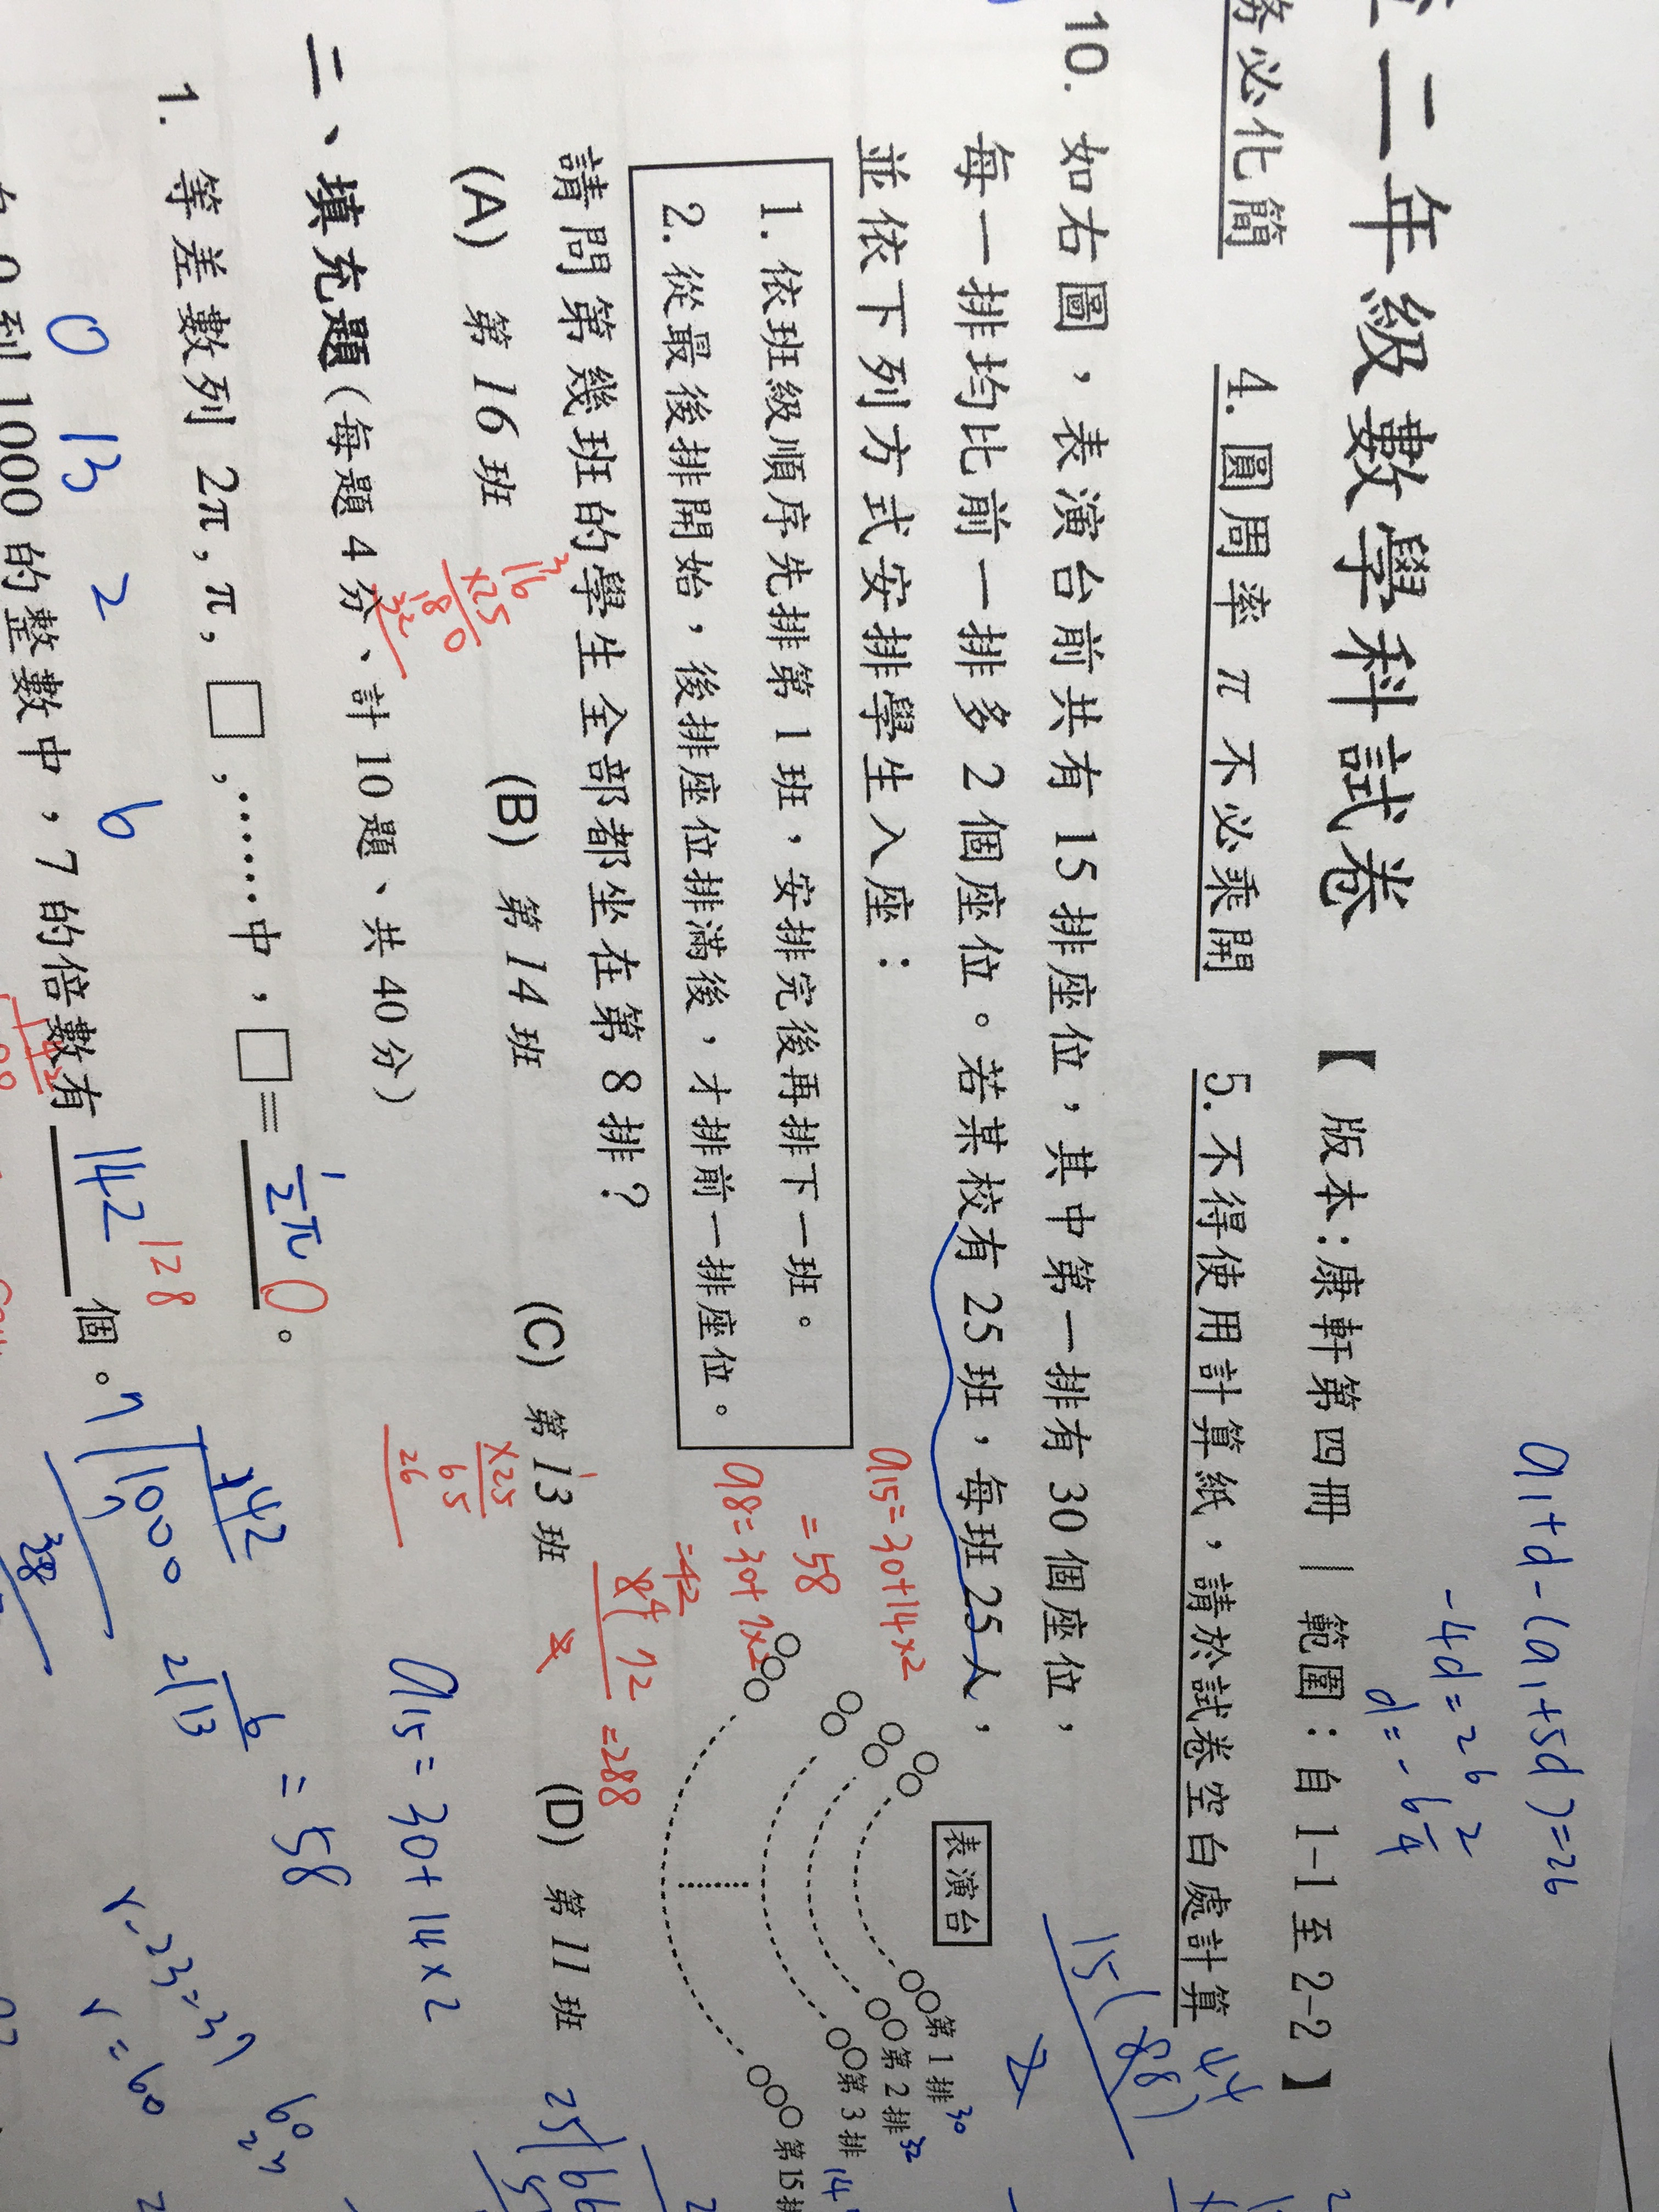 二年級數學科試卷 【版本:康軒第四冊 | 範圍:自 1-1 至 2-2】
務必化簡 4. 圓周率 π 不必乘開 5. 不得使用計算紙,請於試卷空白處計算
10. 如右圖,表演台前共有 15 排座位,其中第一排有 30 個座位,
每一排均比前一排多 2 個座位。若某校有 25 班,每班 25 人,
並依下列方式安排學生入座:
1. 依班級順序先排第 1 班,安排完後再排下一班。
2. 從最後排開始,後排座位排滿後,才排前一排座位。
請問第幾班的學生全部都坐在第 8 排?
(A) 第 16 班 (B) 第 14 班 (C) 第 13 班 (D) 第 11 班
表演台
第 1 排 30
第 2 排 32
第 3 排
第 15 排
二、填充題(每題 4 分、計 10 題、共 40 分)
1. 等差數列 2π, π, □, ……中,□= ½π 0。
到 1000 的整數中,7 的倍數有 142 128 個。
a1+d-(a1+5d)=26
-4d=26
a15=30+14×2
=58
a8=30+7×2
=42
=288
16
×25
×25
65
26
a15=30+14×2
=58
0 13 2 6
142
7 1000
2 13
6
r-23=37
r=60